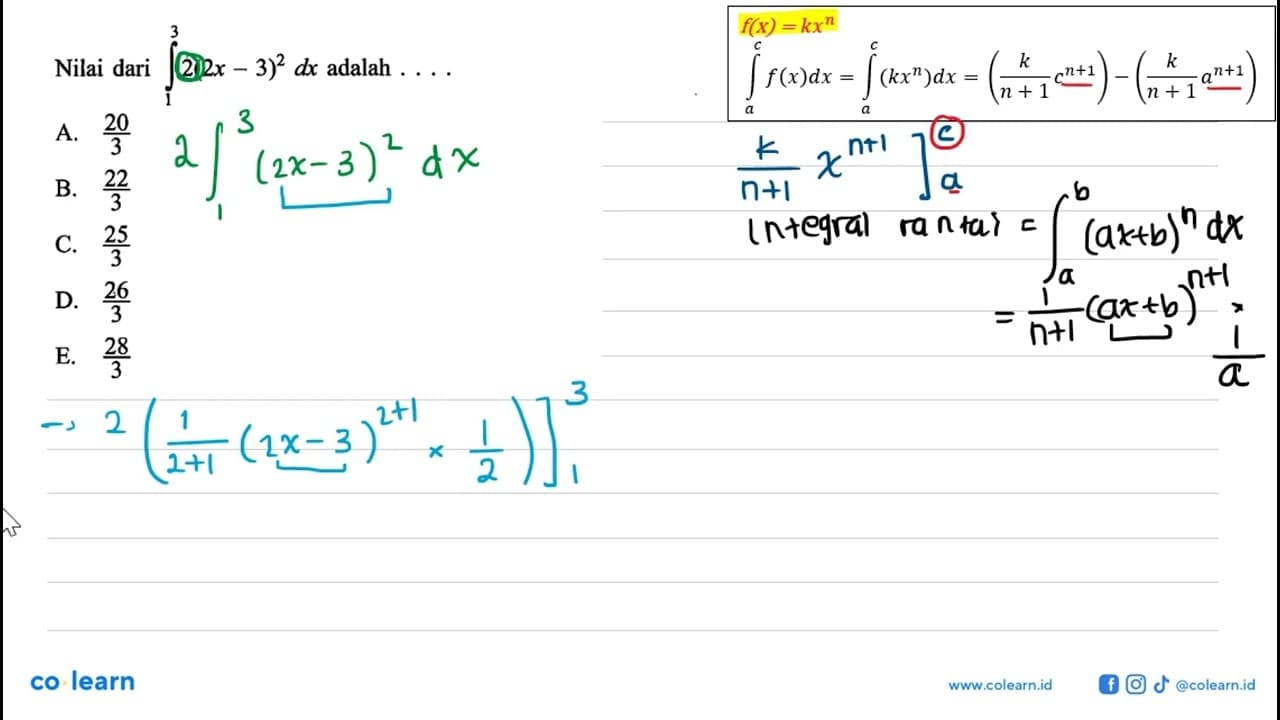 Nilai dari ∫₁³ 2(2x − 3)² dx adalah . . . .
A. 20/3
B. 22/3
C. 25/3
D. 26/3
E. 28/3
2 ∫₁³ (2x − 3)² dx
→ 2 (1/(2+1) (2x − 3)²⁺¹ × 1/2)]₁³
f(x) = kxⁿ
∫ₐᶜ f(x)dx = ∫ₐᶜ (kxⁿ)dx = (k/(n + 1) cⁿ⁺¹) − (k/(n + 1) aⁿ⁺¹)
k/(n+1) xⁿ⁺¹ ]ₐᶜ
Integral rantai = ∫ₐᵇ (ax+b)ⁿ dx
= 1/(n+1) (ax+b)ⁿ⁺¹ × 1/a
co learn
www.colearn.id
@colearn.id